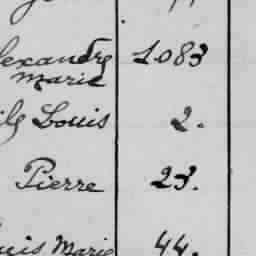 lexandre 1083
Marie
ile Louis 2.
Pierre 23.
ouis Marie 44.